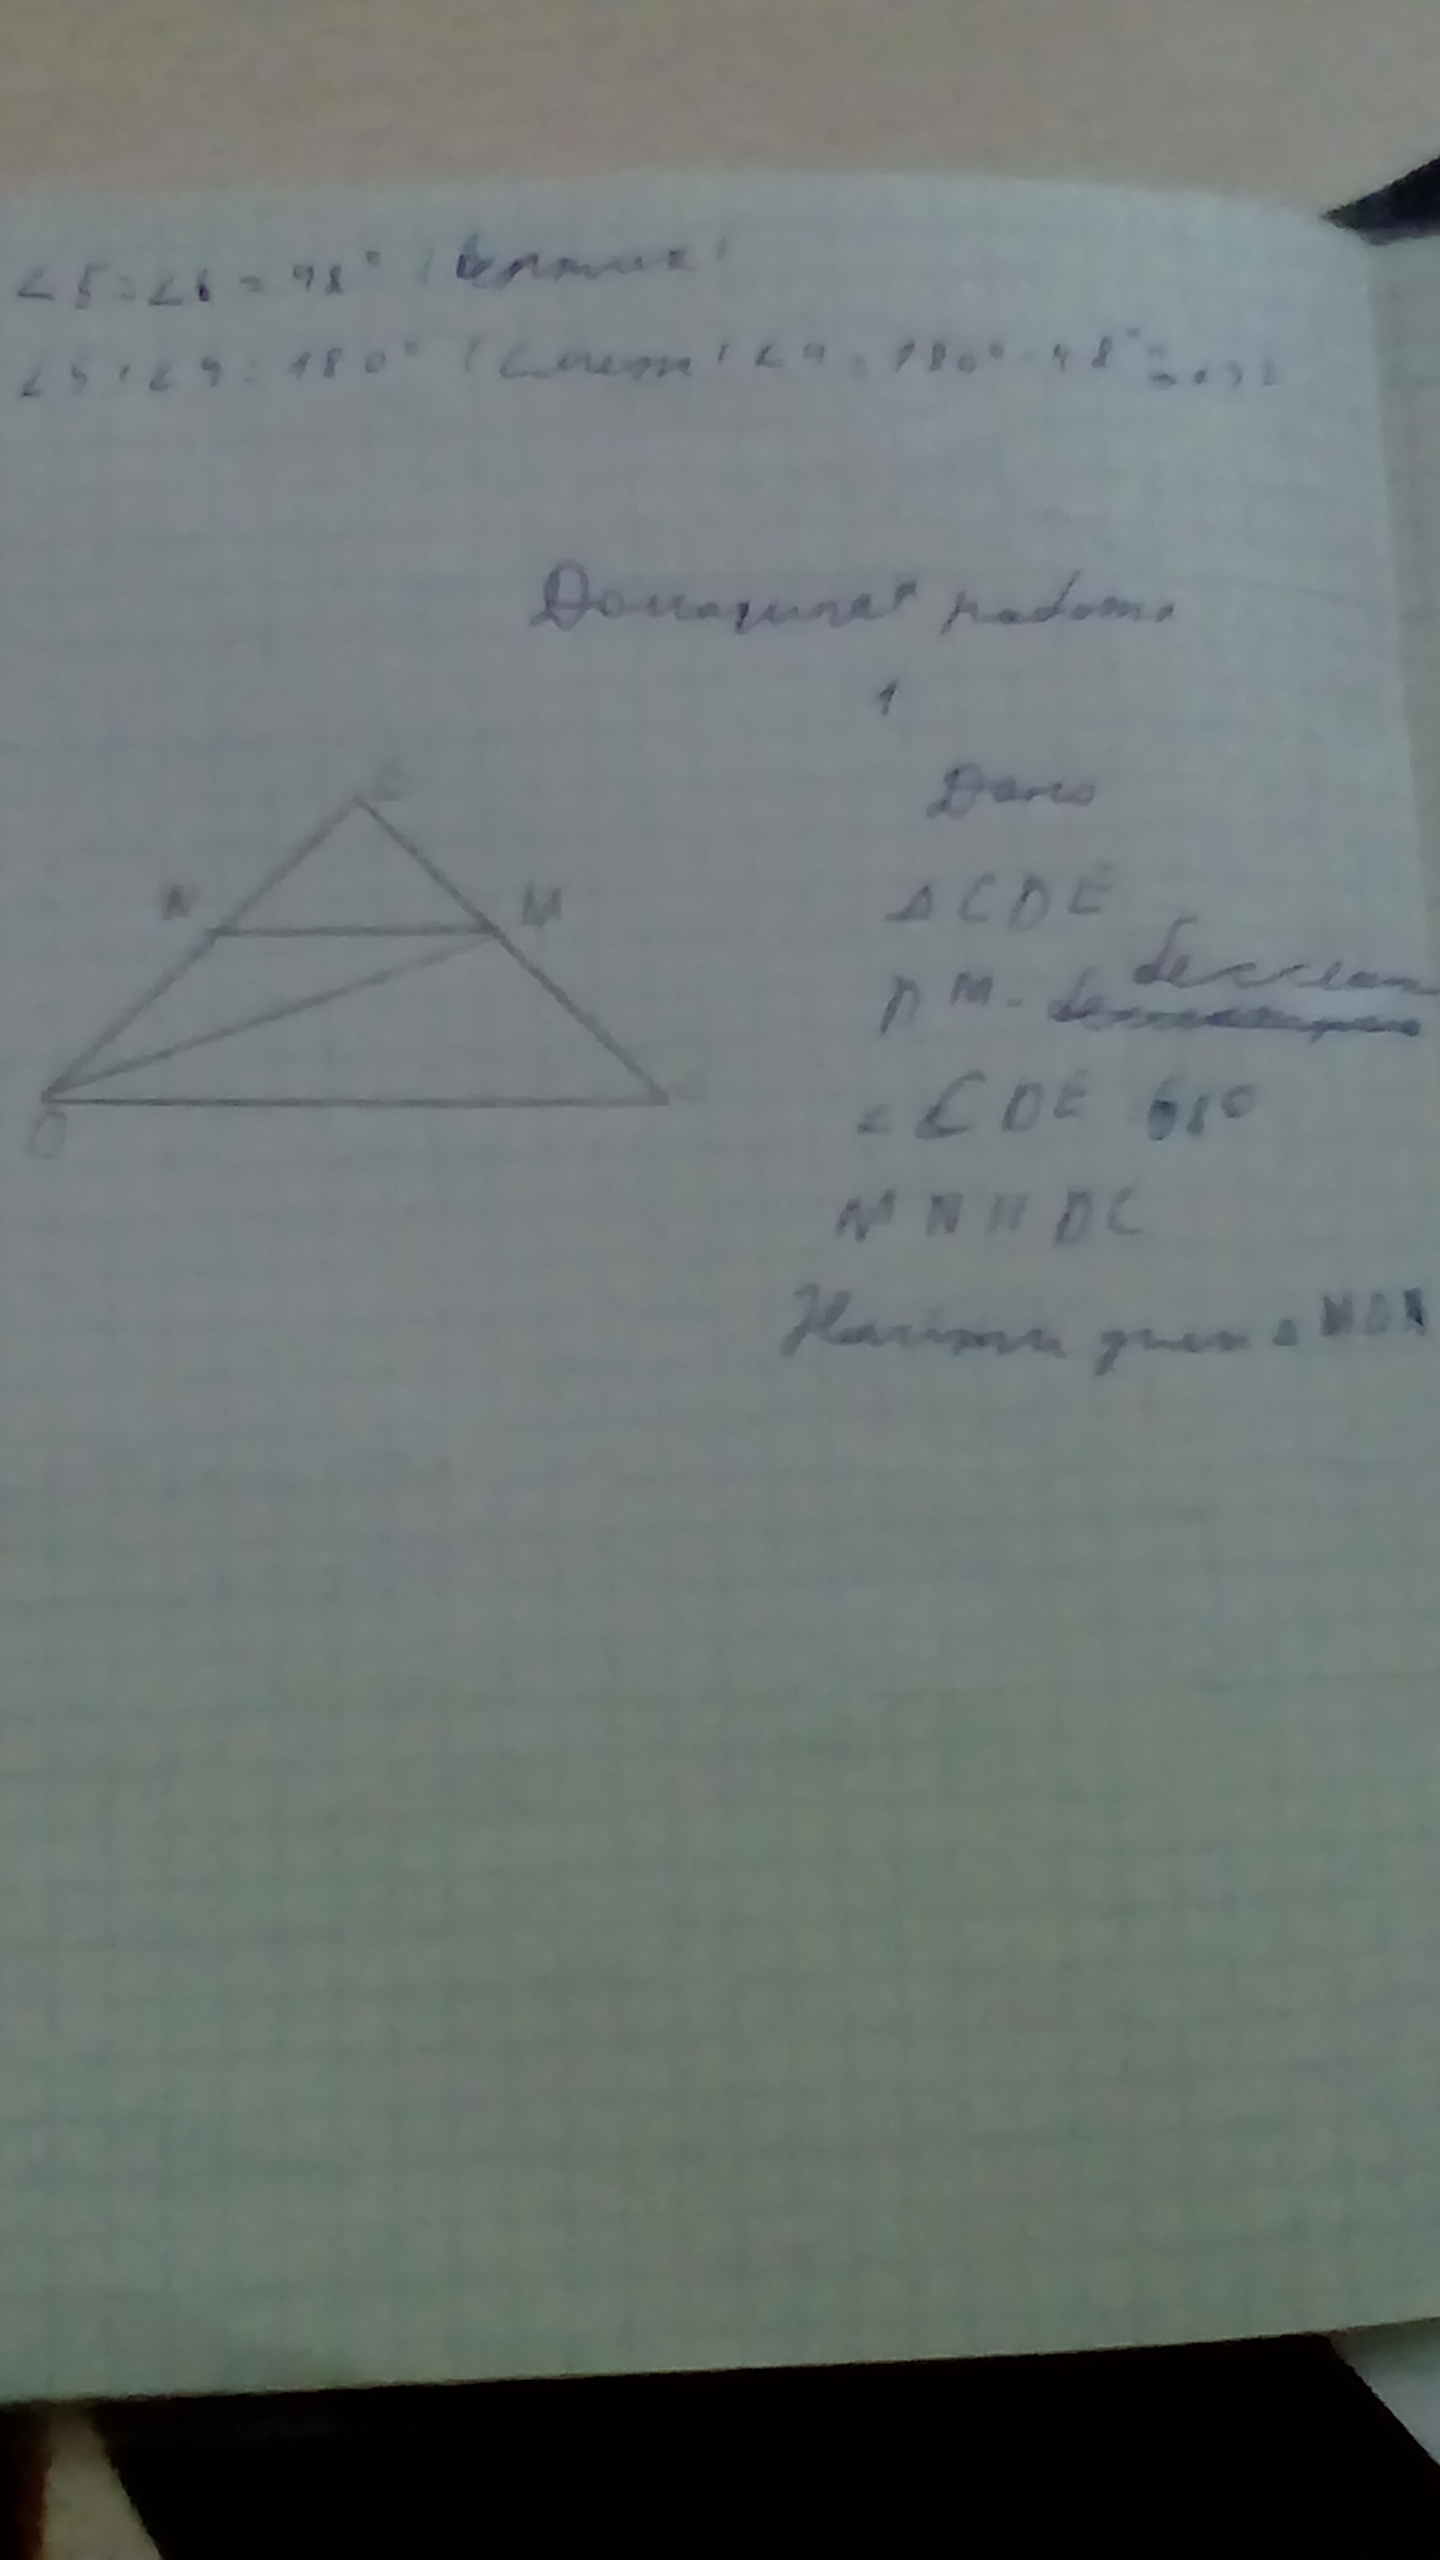 ∠5 = ∠6 = 48° (вертик)
∠5 + ∠4 = 180° (смеж) ∠4 = 180° - 48° = 132
Домашняя работа
1
Дано
E
△ CDE
N M
DM - биссек
∠ CDE 68°
D C
MN || DC
Найти углы △ MDN